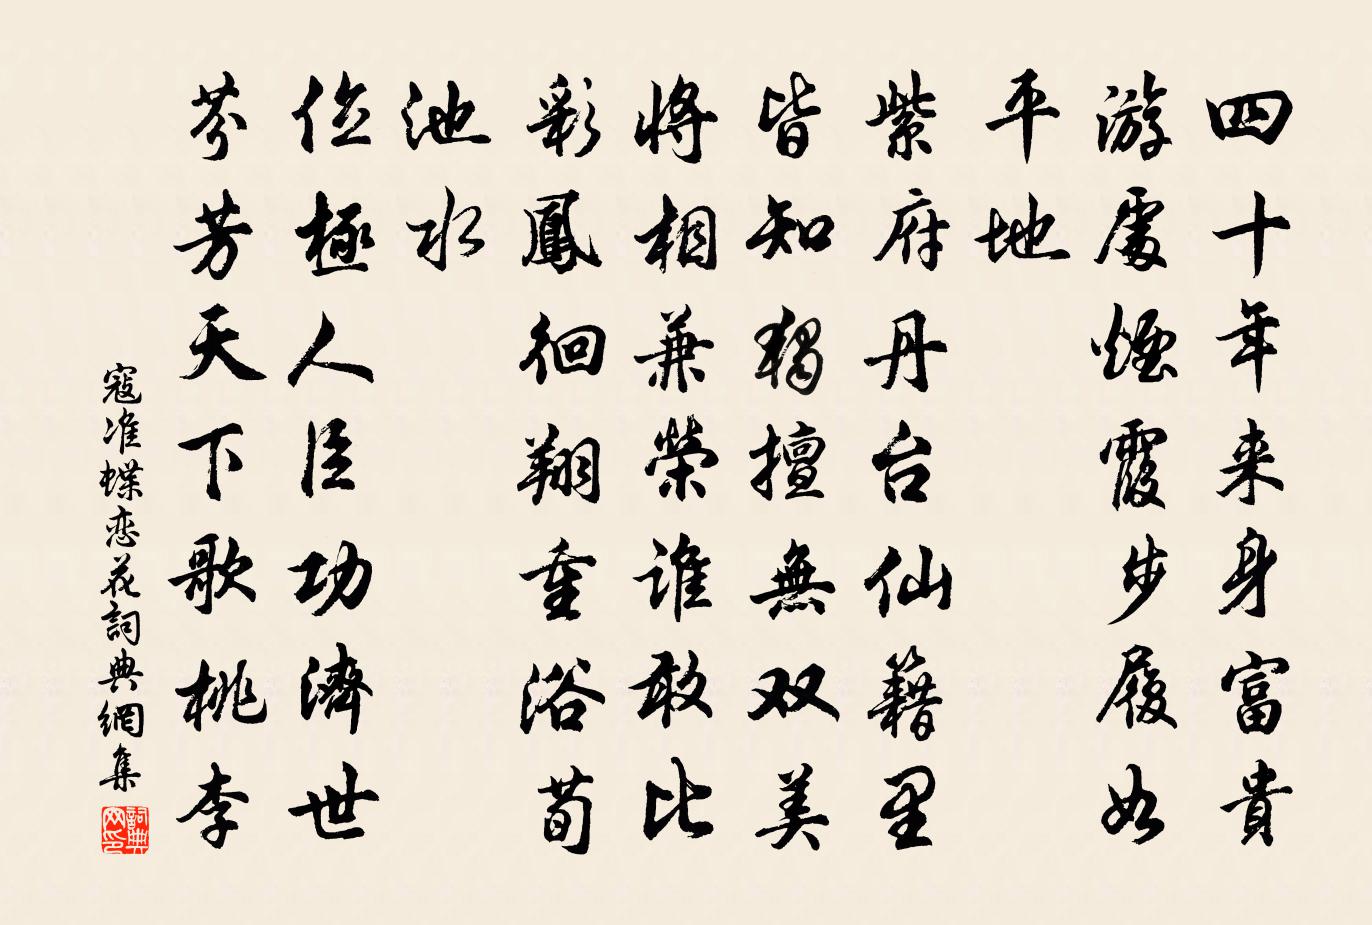 四十年来身富貴
游處煙霞步履如
平地
紫府丹台仙籍里
皆知獨擅無双美
將相兼榮誰敢比
彩鳳徊翔重浴荀
池水
位極人臣功濟世
芬芳天下歌桃李
寇准蝶恋花詞典網集
詞典網印